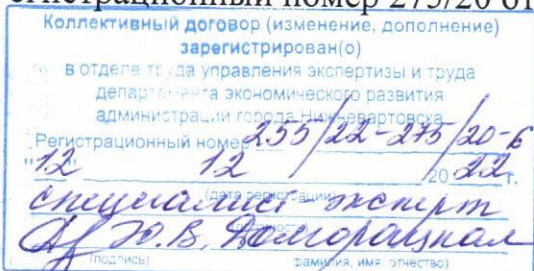 регистрационный номер 275/20 от
Коллективный договор (изменение, дополнение)
зарегистрирован(о)
в отделе труда управления экспертизы и труда
департамента экономического развития
администрации города Нижневартовска
Регистрационный номер 255/22-275/20-6
"12" 12 2022 г.
(дата регистрации)
специалист-эксперт
Ю.В.
(подпись) фамилия, имя, отчество)